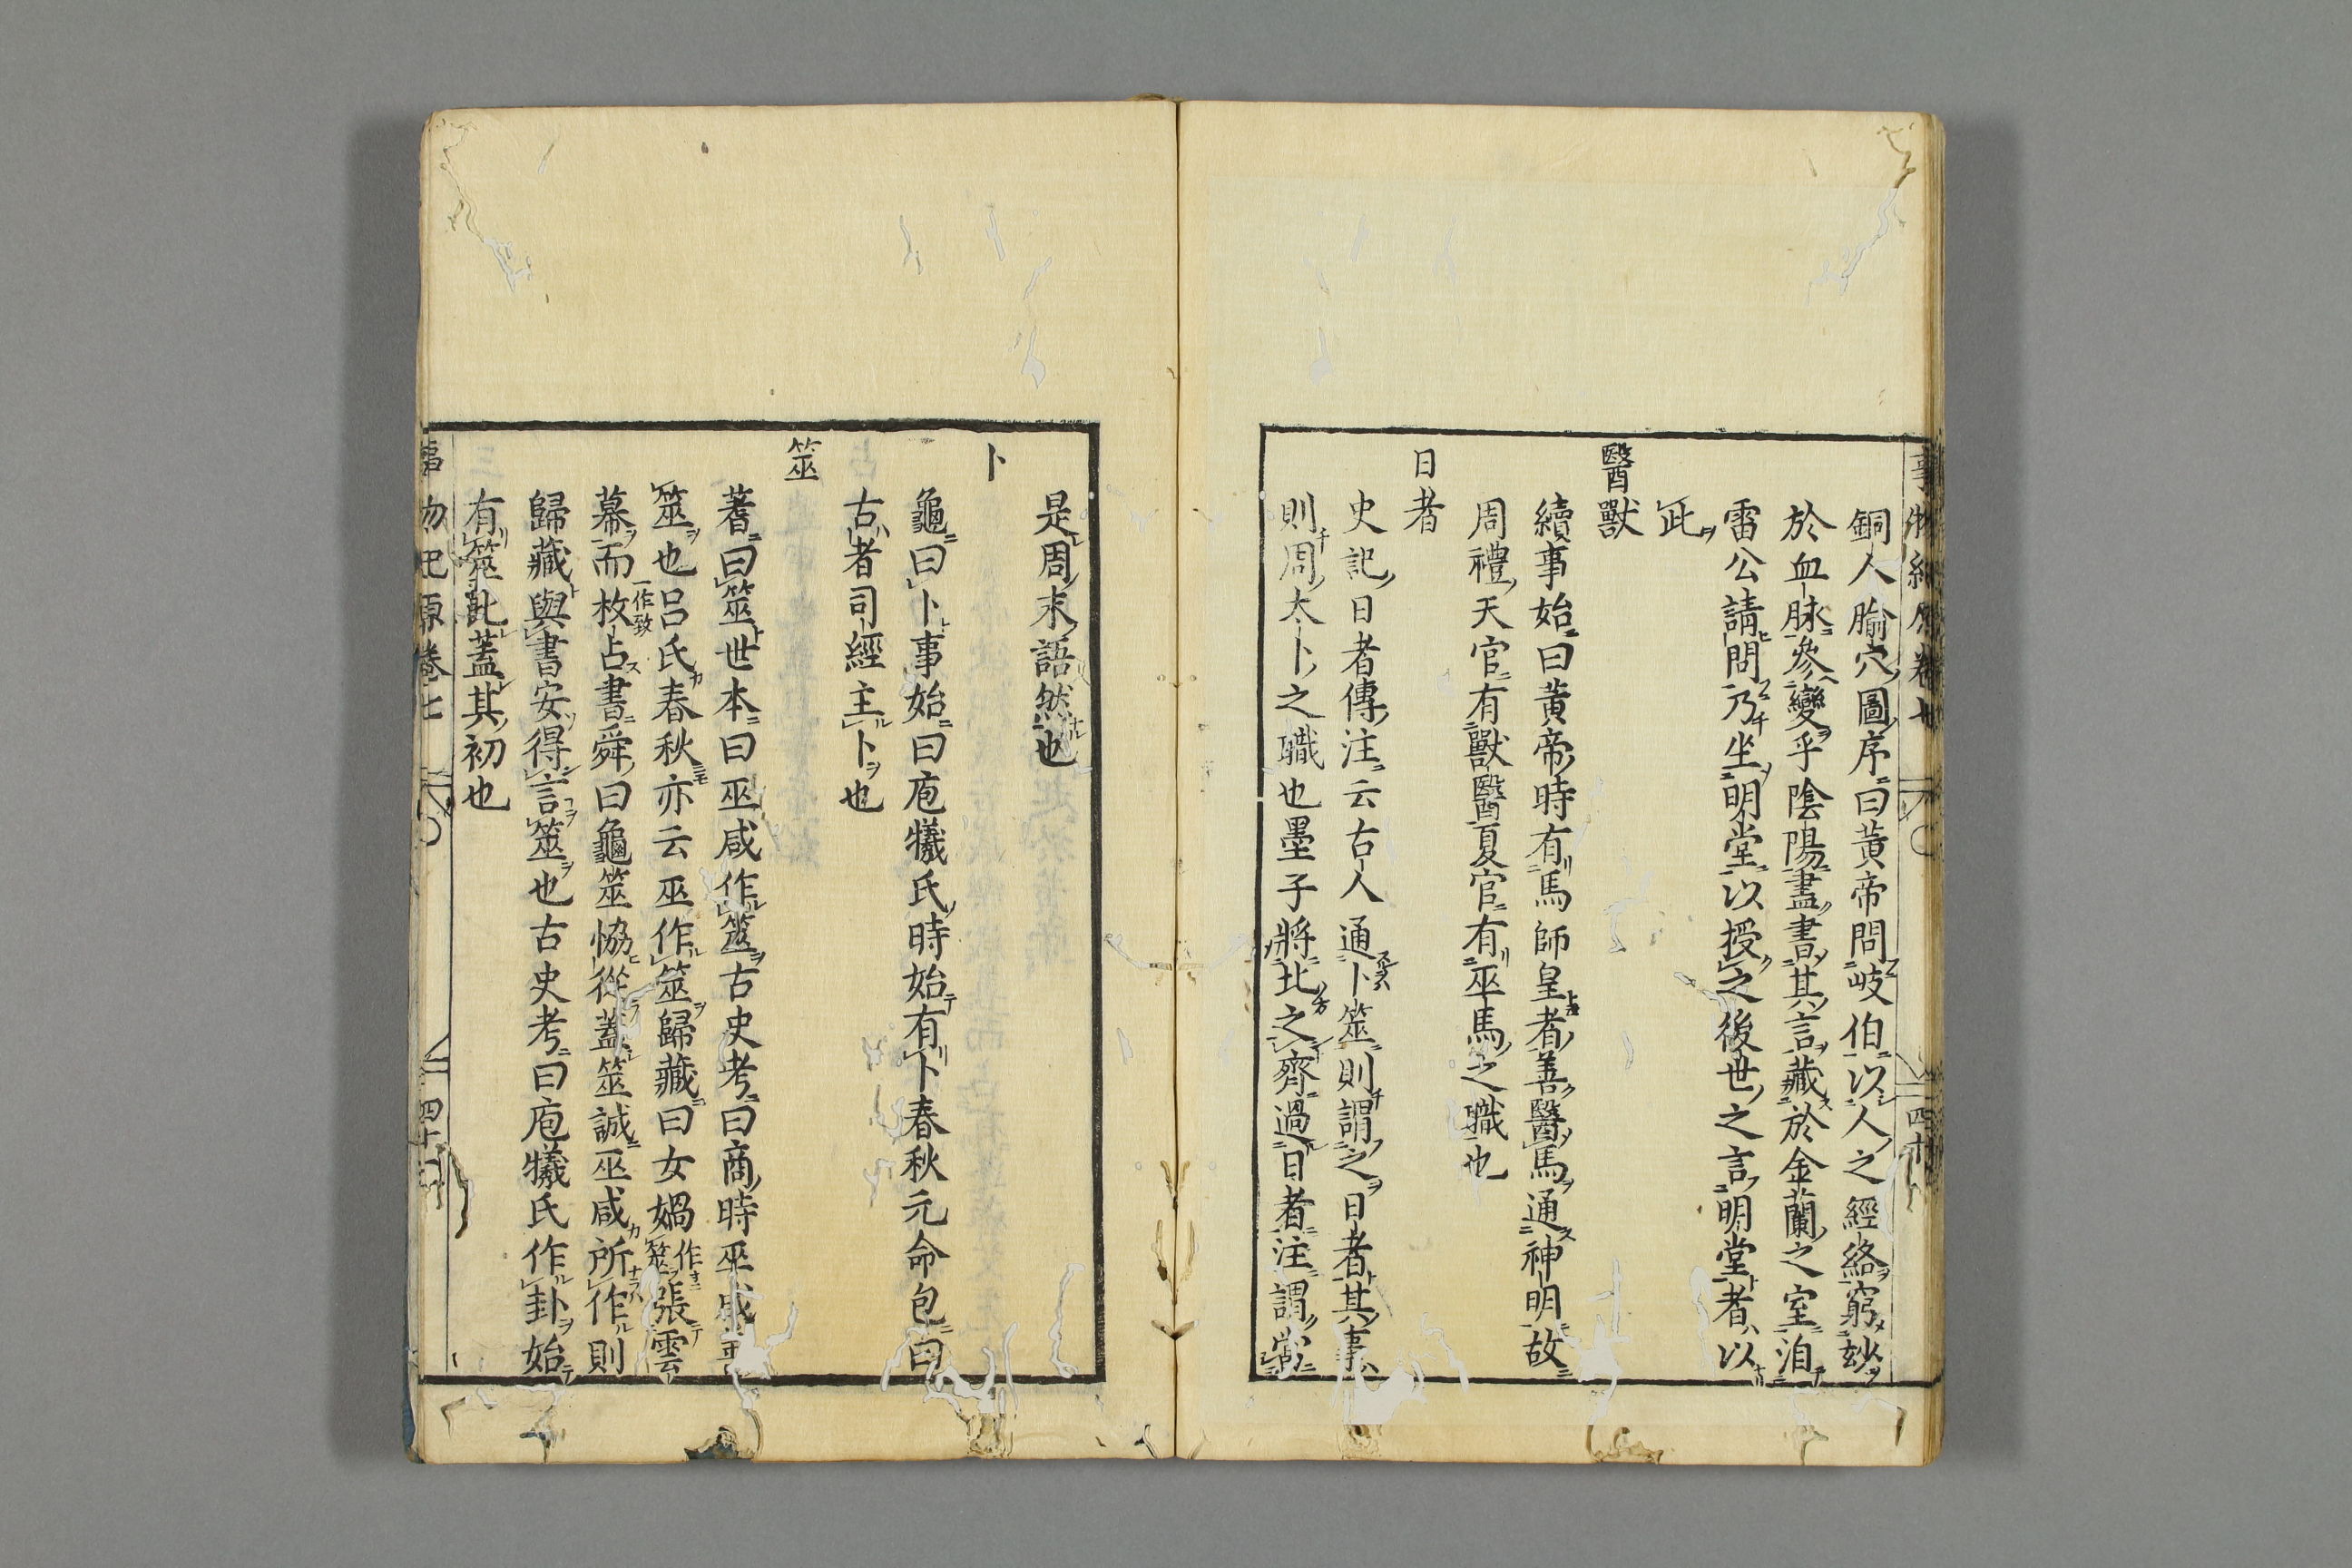 銅人腧穴圖序曰黃帝問岐伯以人之經絡窮妙
於血脉參變乎陰陽盡書其言藏於金蘭之室洎
雷公請問乃坐明堂以授之後世之言明堂者以
此
醫獸
續事始曰黃帝時有馬師皇者善醫馬通神明故
周禮天官有獸醫夏官有巫馬之職也
日者
史記日者傳注云古人通卜筮則謂之日者其事
則周太卜之職也墨子將北之齊過日者注謂
是周末語然也
卜
龜曰卜事始曰庖犧氏時始有卜春秋元命包曰
古者司經主卜也
筮
蓍曰筮世本曰巫咸作筮古史考曰商時巫咸善
筮也呂氏春秋亦云巫作筮歸藏曰女媧作筮張雲
幕而枚一作致占書舜曰龜筮恊從蓋筮誠巫咸所作則
歸藏與書安得言筮也古史考曰庖犧氏作卦始
有筮此蓋其初也
事物紀原卷七 四十